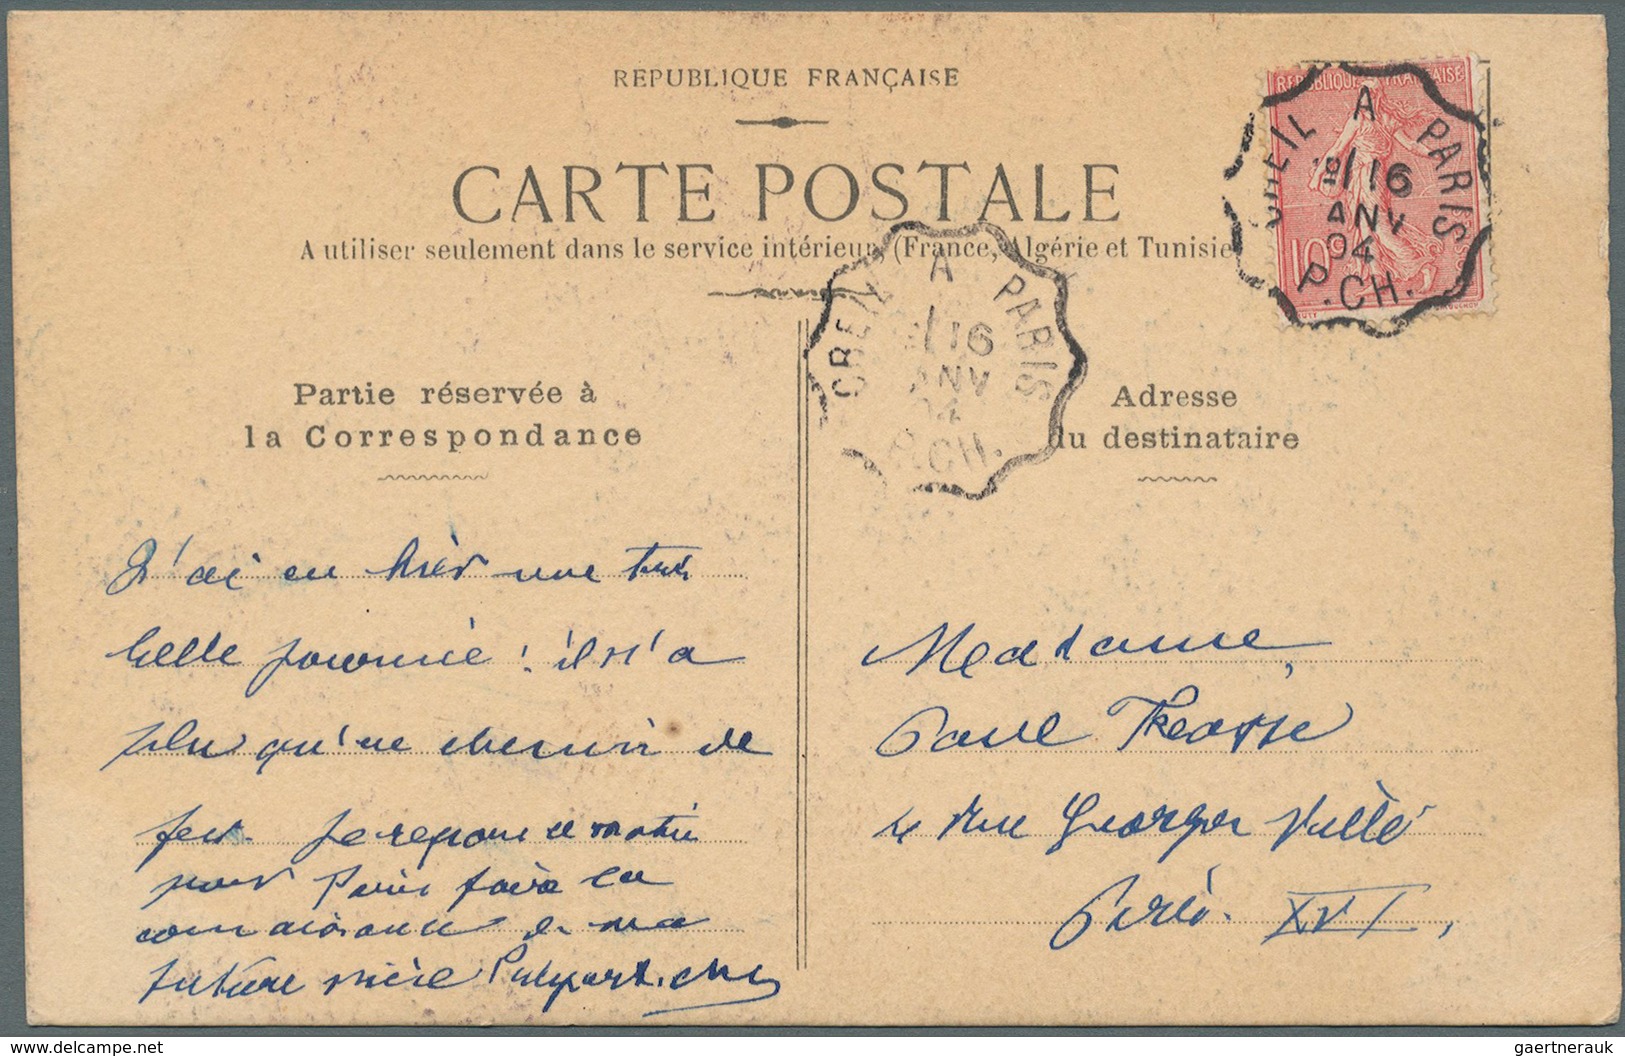 REPUBLIQUE FRANÇAISE
CARTE POSTALE
A utiliser seulement dans le service intérieur, (France, Algérie et Tunisie
REPUBLIQUE FRANÇAISE
10
CREIL A PARIS
16
ANV
04
P.CH.
CREIL A PARIS
16
ANV
04
P.CH.
Partie réservée à
la Correspondance
Adresse
du destinataire
J'ai eu hier une très
belle journée! il n'a
plu qu'en chemin de
fer. Je repars ce matin
pour Paris faire la
connaissance de ma
future nièce
Madame,
Paul
4 Rue Georges Ville
Paris. XVI,
delcampe.net
gaertnerauk